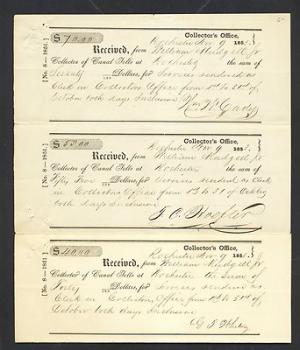 Collector's Office,
$70.00 Rochester Nov 9 185
Received, from William Mudgett, Jr
Collector of Canal Tolls at Rochester the sum of
Seventy Dollars, for Services rendered as
Clerk in Collectors Office from 1st to 31st of
October both days Inclusive
No. 8—1851.
Collector's Office,
$ Rochester Nov 9 185
Received, from William Mudgett, Jr
Collector of Canal Tolls at Rochester the sum of
Fifty Dollars, for Services rendered as Clerk
in Collectors Office from 1st to 31 of October
both days Inclusive
No. 8—1851.
Collector's Office,
$40.00 Rochester Nov 9 185
Received, from William Mudgett, Jr
Collector of Canal Tolls at Rochester the Sum of
Forty Dollars, for Services rendered as
Clerk in Collectors Office from 1st to 31st of
October both days Inclusive
No. 8—1851.